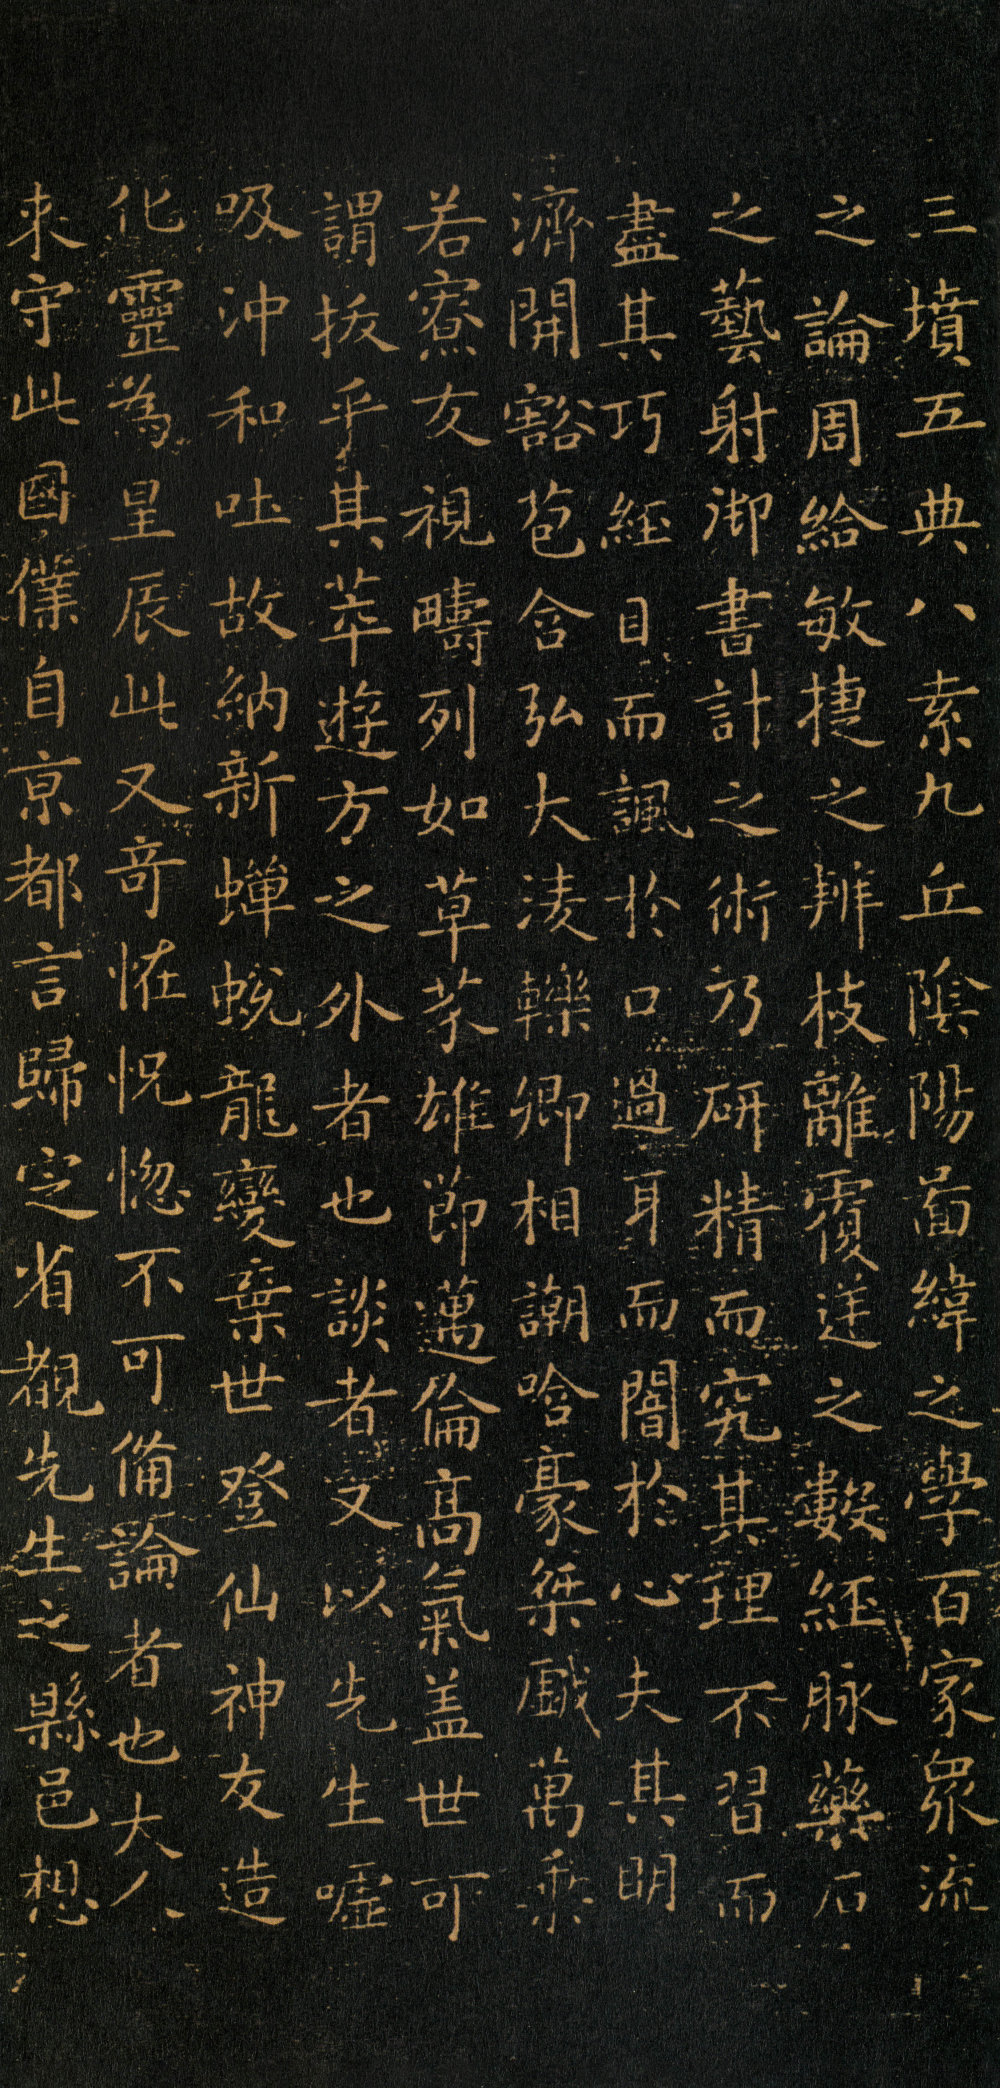 三墳五典八索九丘陰陽啚緯之學百家衆流
之論周給敏捷之辨枝離覆逆之數經脉藥石
之藝射御書計之術乃研精而究其理不習而
盡其巧經目而諷於口過耳而闇於心夫其明
濟開豁苞含弘大淩轢卿相謿哈豪桀戲萬乘
若寮友視疇列如草芥雄節邁倫高氣盖世可
謂拔乎其萃遊方之外者也談者又以先生噓
吸沖和吐故納新蟬蛻龍變棄世登仙神友造
化靈為星辰此又奇恠怳惚不可備論者也大人
来守此國僕自京都言歸定省覩先生之縣邑想